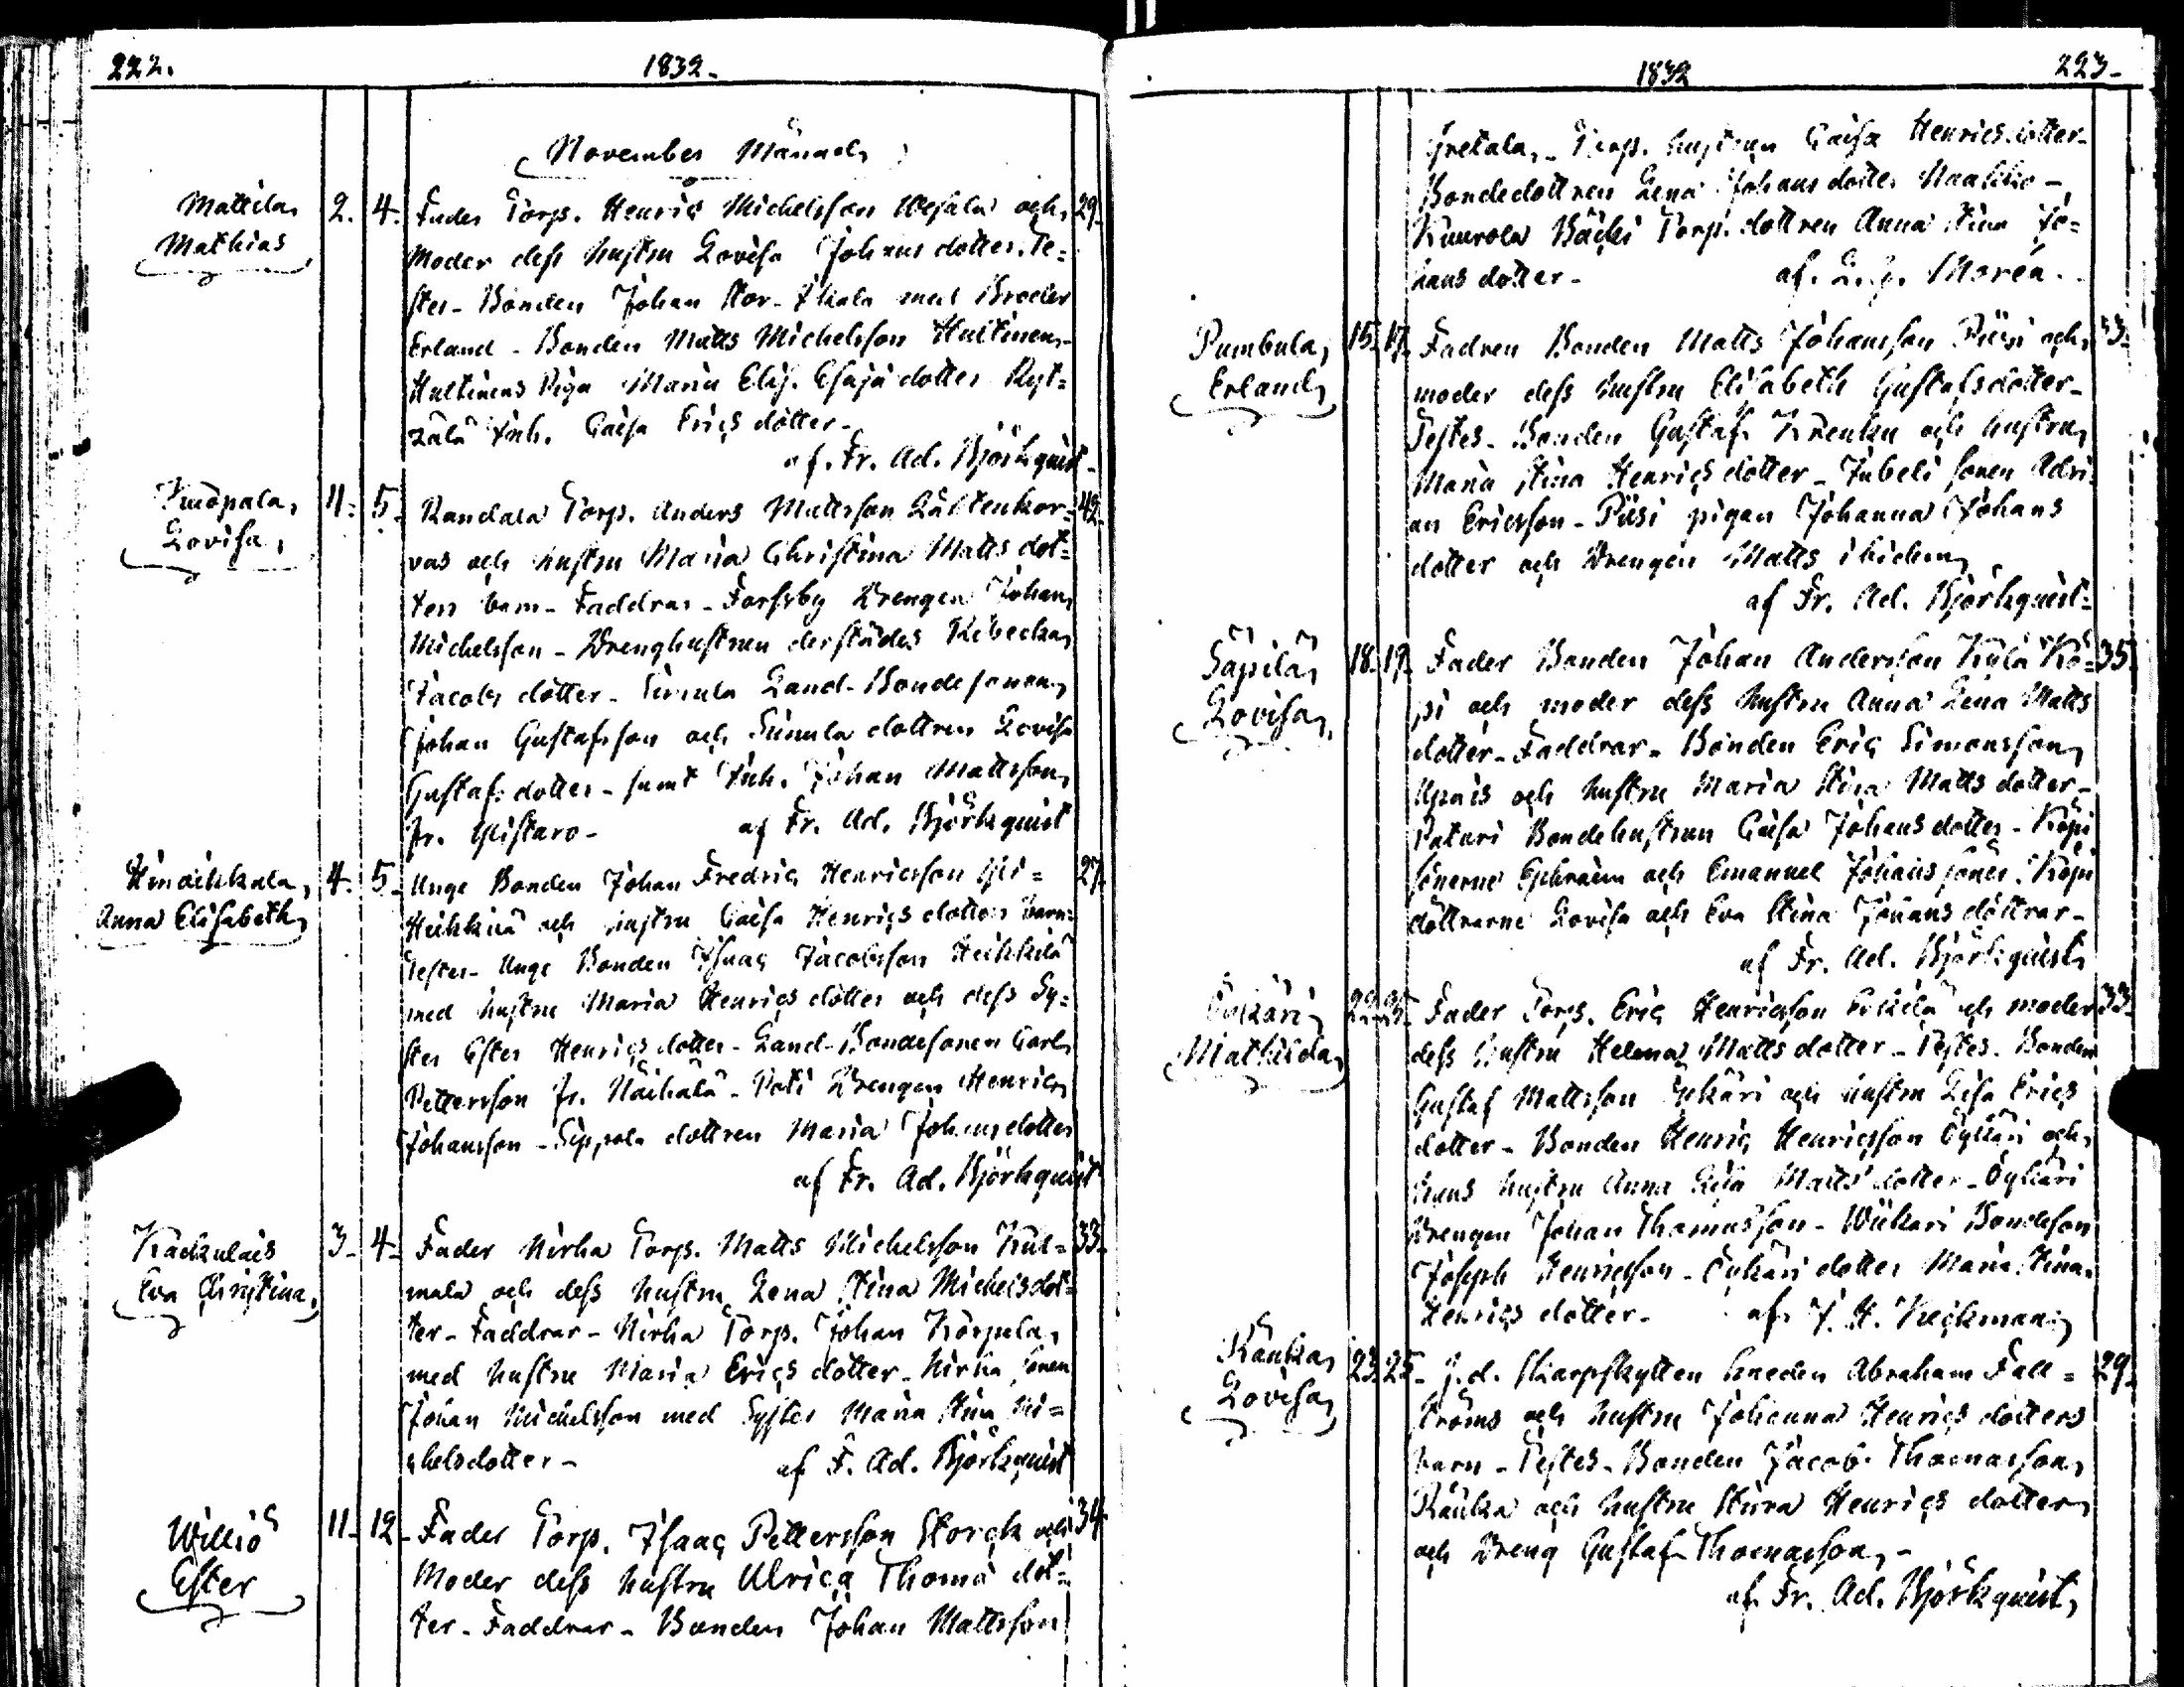 222.
1832.
November Månad
Mattila
Mathias
2. 4. Fader Torp. Henric Michelsson Wesala och 29.
Moder dess hustru Lovisa Johans dotter. Te=
stes - Bonden Johan Stor- med Broder
Erland - Bonden Matts Michelsson Huttinen
Huttinens Piga Maria Elis. Esaja dotter
Inh. Caisa Erics dotter -
af. Fr. Ad. Björkquist -
Lovisa
4. 5. Randala Torp. Anders Mattsson 42.
vas och hustru Maria Christina Matts dot=
ters barn - Faddrar - Forssby Drengen Johan
Michelsson - Drenghustrun derstädes Rebecka
Jacobs dotter - Simula Land-Bondesonen
Johan Gustafsson och Simula dottren Lovisa
Gustafs dotter - samt Inh. Johan Mattsson
fr. - af Fr. Ad. Björkquist
Anna Elisabeth
4. 5. Unge Bonden Johan Fredric Henricsson Yli= 27.
Heikkilä och hustru Caisa Henrics dotters barn=
Testes - Unge Bonden Isaac Jacobsson Heikkilä
med hustru Maria Henrics dotter och dess Sy=
ster Ester Henrics dotter - Land-Bondesonen Carl
Pettersson fr. - Drengen Henric
Johansson - Seppala dottren Maria Johans dotter
af Fr. Ad. Björkquist
Kackulais
Eva Christina
3. 4. Fader Nirha Torp. Matts Michelsson Kul= 33.
mala och dess hustru Lena Stina Michelsdot=
ter - Faddrar - Nirha Torp. Johan Korpela
med hustru Maria Erics dotter - Nirha sonen
Johan Michelsson med Syster Maria Stina Mi=
chelsdotter - af F. Ad. Björkquist
Williö
Ester
11. 12. Fader Torp. Isaac Pettersson Storck och 34.
Moder dess hustru Ulrica Thoma dot=
ter - Faddrar - Bonden Johan Mattsson
1832
223.
Gretala, - Torp. hustrun Caisa Henrics dotter -
Bondedottren Lena Johans dotter -
Kuurola Bäcki Torp. dottren Anna Stina Jo=
hans dotter - af. Moren.
Pumbula
Erland
15. 17. Fadren Bonden Matts Johansson Piisi och 33.
moder dess hustru Elisabeth Gustafsdotter -
Testes - Bonden Gustaf och hustru
Maria Stina Henrics dotter - sonen Adri
an Ericsson - Piisi pigan Johanna Johans
dotter och Drengen Matts ibidem
af Fr. Ad. Björkquist=
Säpilä
Lovisa
18. 19. Fader Bonden Johan Andersson Kylä Kö= 35.
pi och moder dess hustru Anna Lena Matts
dotter - Faddrar - Bonden Eric Simonsson
och hustru Maria Stina Matts dotter -
Bondehustrun Caisa Johans dotter - Köpi
sönerne Ephraim och Emanuel Johans söner. Köpi
döttrarne Lovisa och Eva Stina Johans döttrar -
af Fr. Ad. Björkquist
Öykäri
Mathilda
22. 25. Fader Torp. Eric Henricsson Erkilä och moder 33.
dess hustru Helena Matts dotter - Testes. Bonden
Gustaf Mattsson Öykäri och hustru Lisa Erics
dotter - Bonden Henric Henricsson Öykäri och
hans hustru Anna Lisa Matts dotter - Öykäri
Drengen Johan Thomasson - Wiikari Bondeson
Joseph Henricsson - Öykäri dotter Maria Stina
Henrics dotter. af
Rauka
Lovisa
23. 25. f. d. Skarpskytten Abraham Fall= 29.
ströms och hustru Johanna Henrics dotters
barn - Testes - Bonden Jacob Thomasson
Rauka och hustru Stina Henrics dotter
och Dreng Gustaf Thomasson, -
af Fr. Ad. Björkquist,